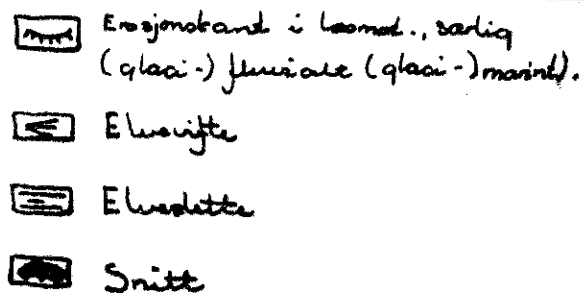 Erosjonskant i løsmat., særlig
(glaci-) fluviale (glaci-) marint).
Elvevifte
Elveslette
Snitt